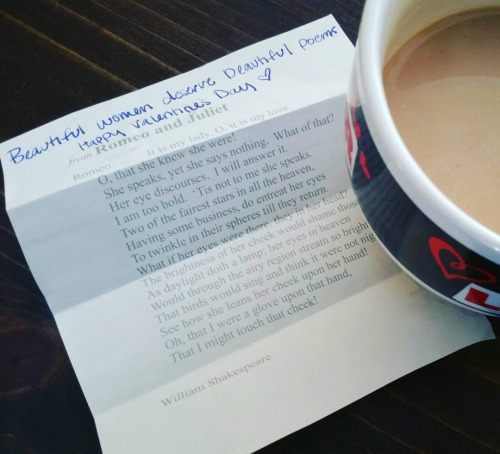 Beautiful women deserve Beautiful poems
Happy Valentine's Day ♡
from Romeo and Juliet
Romeo It is my lady, O, it is my love
O, that she knew she were!
She speaks, yet she says nothing. What of that?
Her eye discourses. I will answer it.
I am too bold. - 'Tis not to me she speaks.
Two of the fairest stars in all the heaven,
Having some business, do entreat her eyes
To twinkle in their spheres till they return.
What if her eyes were there, they in her head?
The brightness of her cheek would shame those
As daylight doth a lamp, her eyes in heaven
Would through the airy region stream so bright
That birds would sing and think it were not nig
See how she leans her cheek upon her hand!
Oh, that I were a glove upon that hand,
That I might touch that cheek!
William Shakespeare